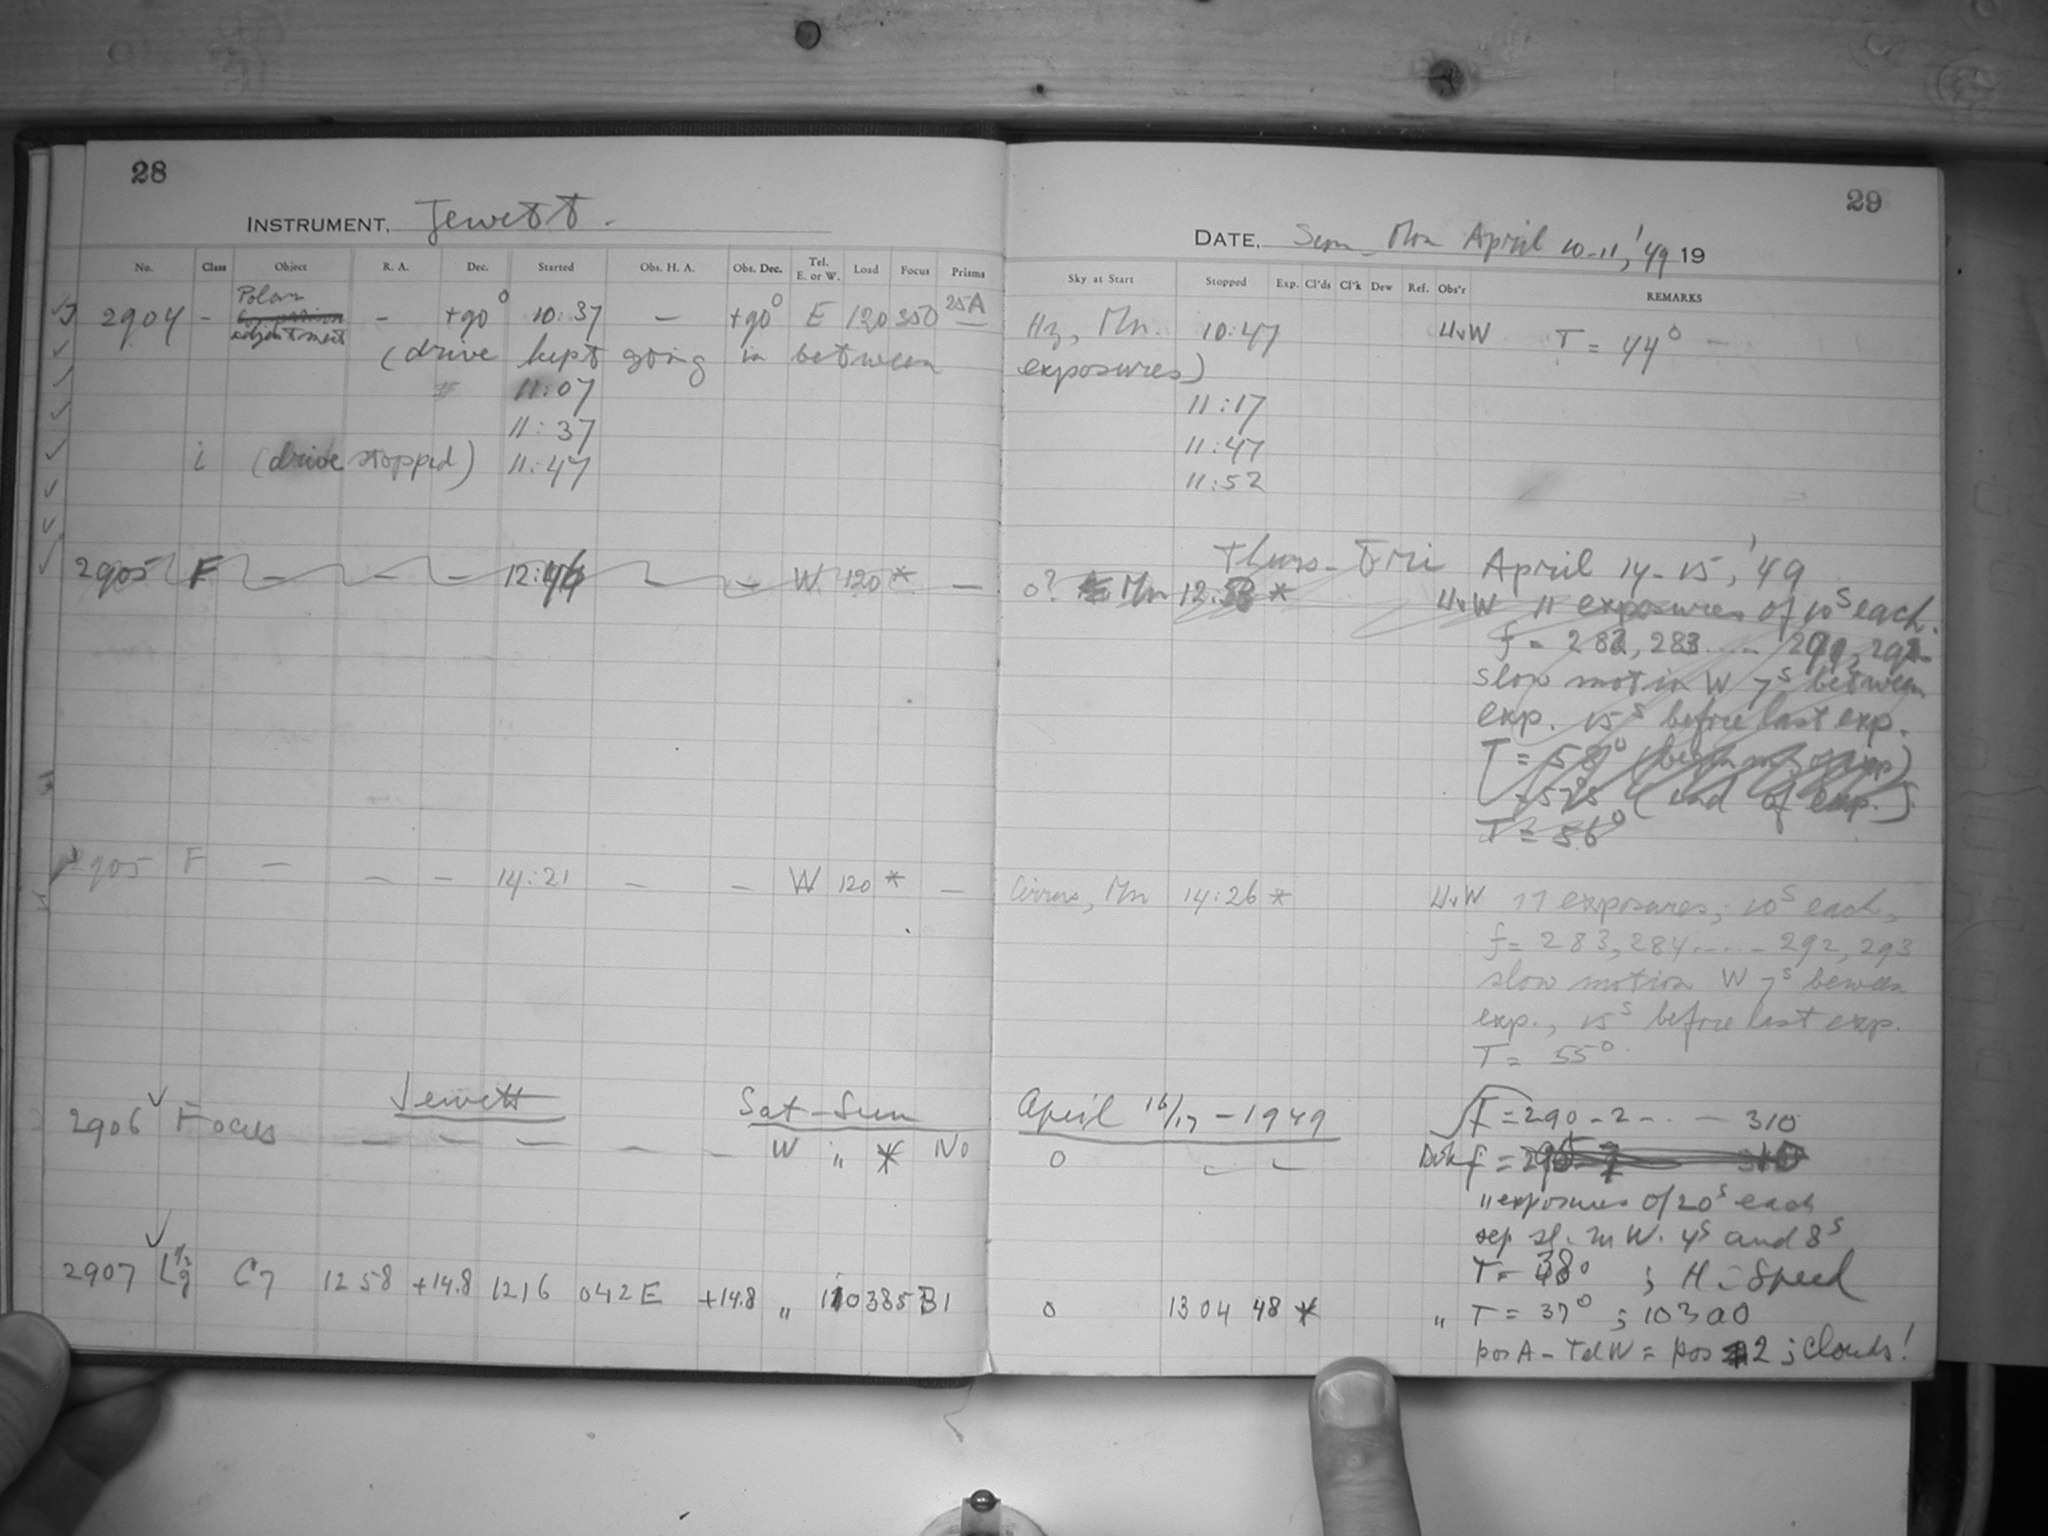 28
INSTRUMENT, Jewett.
No. Class Object R. A. Dec. Started Obs. H. A. Obs. Dec. Tel. E. or W. Load Focus Prisms
2904 - Polar adjustment - +90° 10:37 - +90° E 120 350 25A
(drive kept going in between
11:07
11:37
i (drive stopped) 11:47
2905 F - - - 12:46 - - W 120 * -
2905 F - - - 14:21 - - W 120 * -
Jewett Sat-Sun
2906 Focus - - - - - W " * No
2907 C7 12 58 +14.8 12 16 042E +14.8 " 110 385 B1
29
DATE, Sun-Mon April 10-11, '49 19
Sky at Start Stopped Exp. Cl'ds Cl'k Dew Ref. Obs'r REMARKS
Hz, Mn. 10:47 UvW T = 44°
exposures)
11:17
11:47
11:52
Thurs-Fri April 14-15, '49
0? Mn 12: * UvW 11 exposures of 10s each.
f = 282, 283 ....
slow motion W 7s between
exp. 15s before last exp.
T = 58° (beginning of exp)
(end of exp.)
T = 56°
Cirrus, Mn 14:26 * UvW 11 exposures, 10s each,
f = 283, 284 ..... 292, 293
slow motion W 7s beween
exp., 15s before last exp.
T = 55°.
April 16/17 - 1949 f = 290 - 2 - .. - 310
0 - - f =
11 exposures of 20s each
sep sl. m W. 4s and 8s
T = 38° ; H - Speed
0 13 04 48 * " T = 37° ; 103a0
pos A - Tel W = pos 2 ; Clouds!